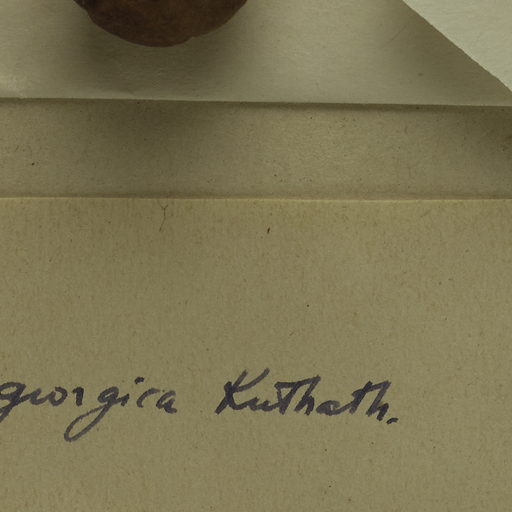 georgica Kuthath.